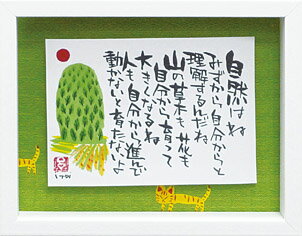 自然はね
みずから、自分からと
理解するんだね
山の草木も花も
自分から育って
大きくなるね
人も自分から進んで
動かないと育たないよ